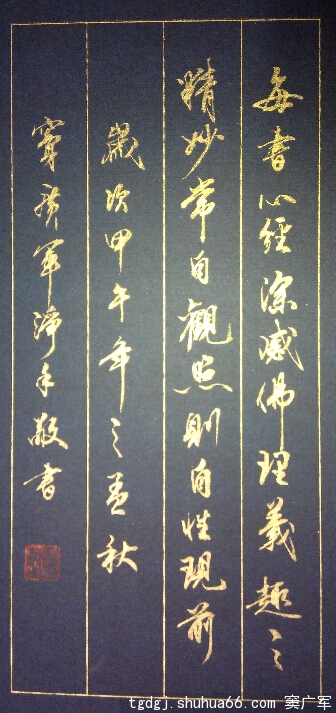 每书心經深感佛理義趣之
精妙常自觀照則自性現前
歲次甲午年之孟秋
竇廣軍淨手敬書
tgdgj.shuhua66.com 窦广军